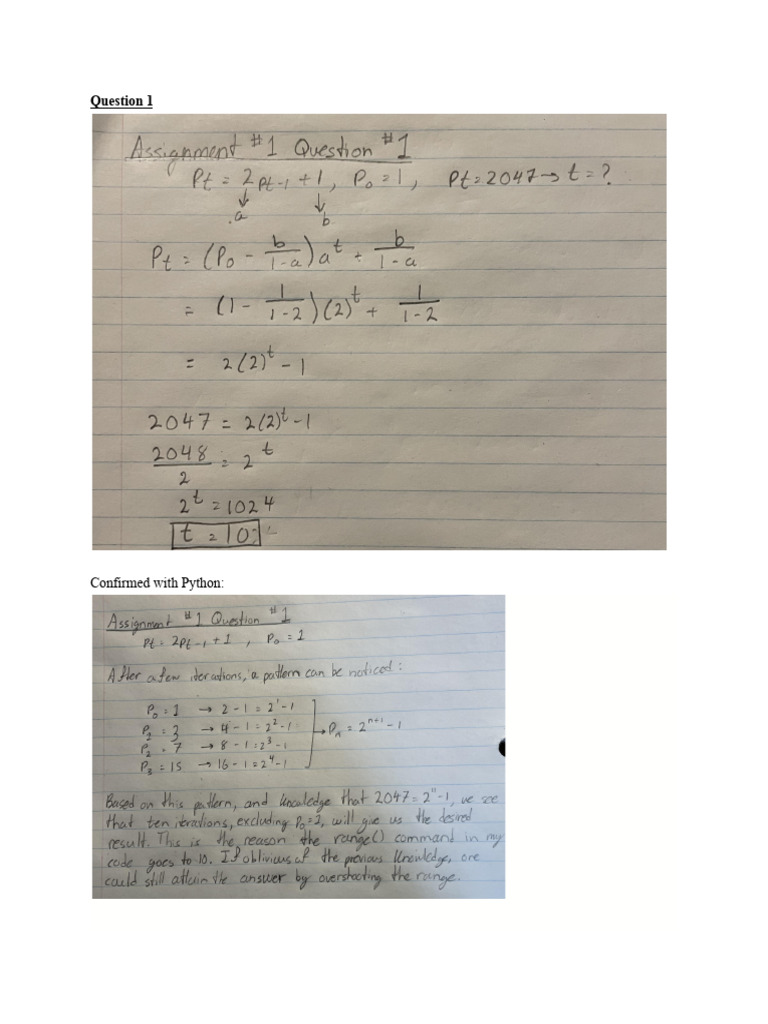 Question 1
Assignment #1 Question #1
Pt = 2Pt-1 + 1, P0 = 1, Pt = 2047 → t = ?
↓ a ↓ b
Pt = (P0 - b/(1-a)) a^t + b/(1-a)
= (1 - 1/(1-2)) (2)^t + 1/(1-2)
= 2(2)^t - 1
2047 = 2(2)^t - 1
2048/2 = 2^t
2^t = 1024
t = 10
Confirmed with Python:
Assignment #1 Question #1
Pt = 2Pt-1 + 1, P0 = 1
After a few iterations, a pattern can be noticed:
P0 = 1 → 2 - 1 = 2^1 - 1
P2 = 3 → 4 - 1 = 2^2 - 1 → Pn = 2^n+1 - 1
P2 = 7 → 8 - 1 = 2^3 - 1
P3 = 15 → 16 - 1 = 2^4 - 1
Based on this pattern, and knowledge that 2047 = 2^11 - 1, we see
that ten iterations, excluding P0 = 1, will give us the desired
result. This is the reason the range() command in my
code goes to 10. If oblivious of the previous knowledge, one
could still attain the answer by overshooting the range.